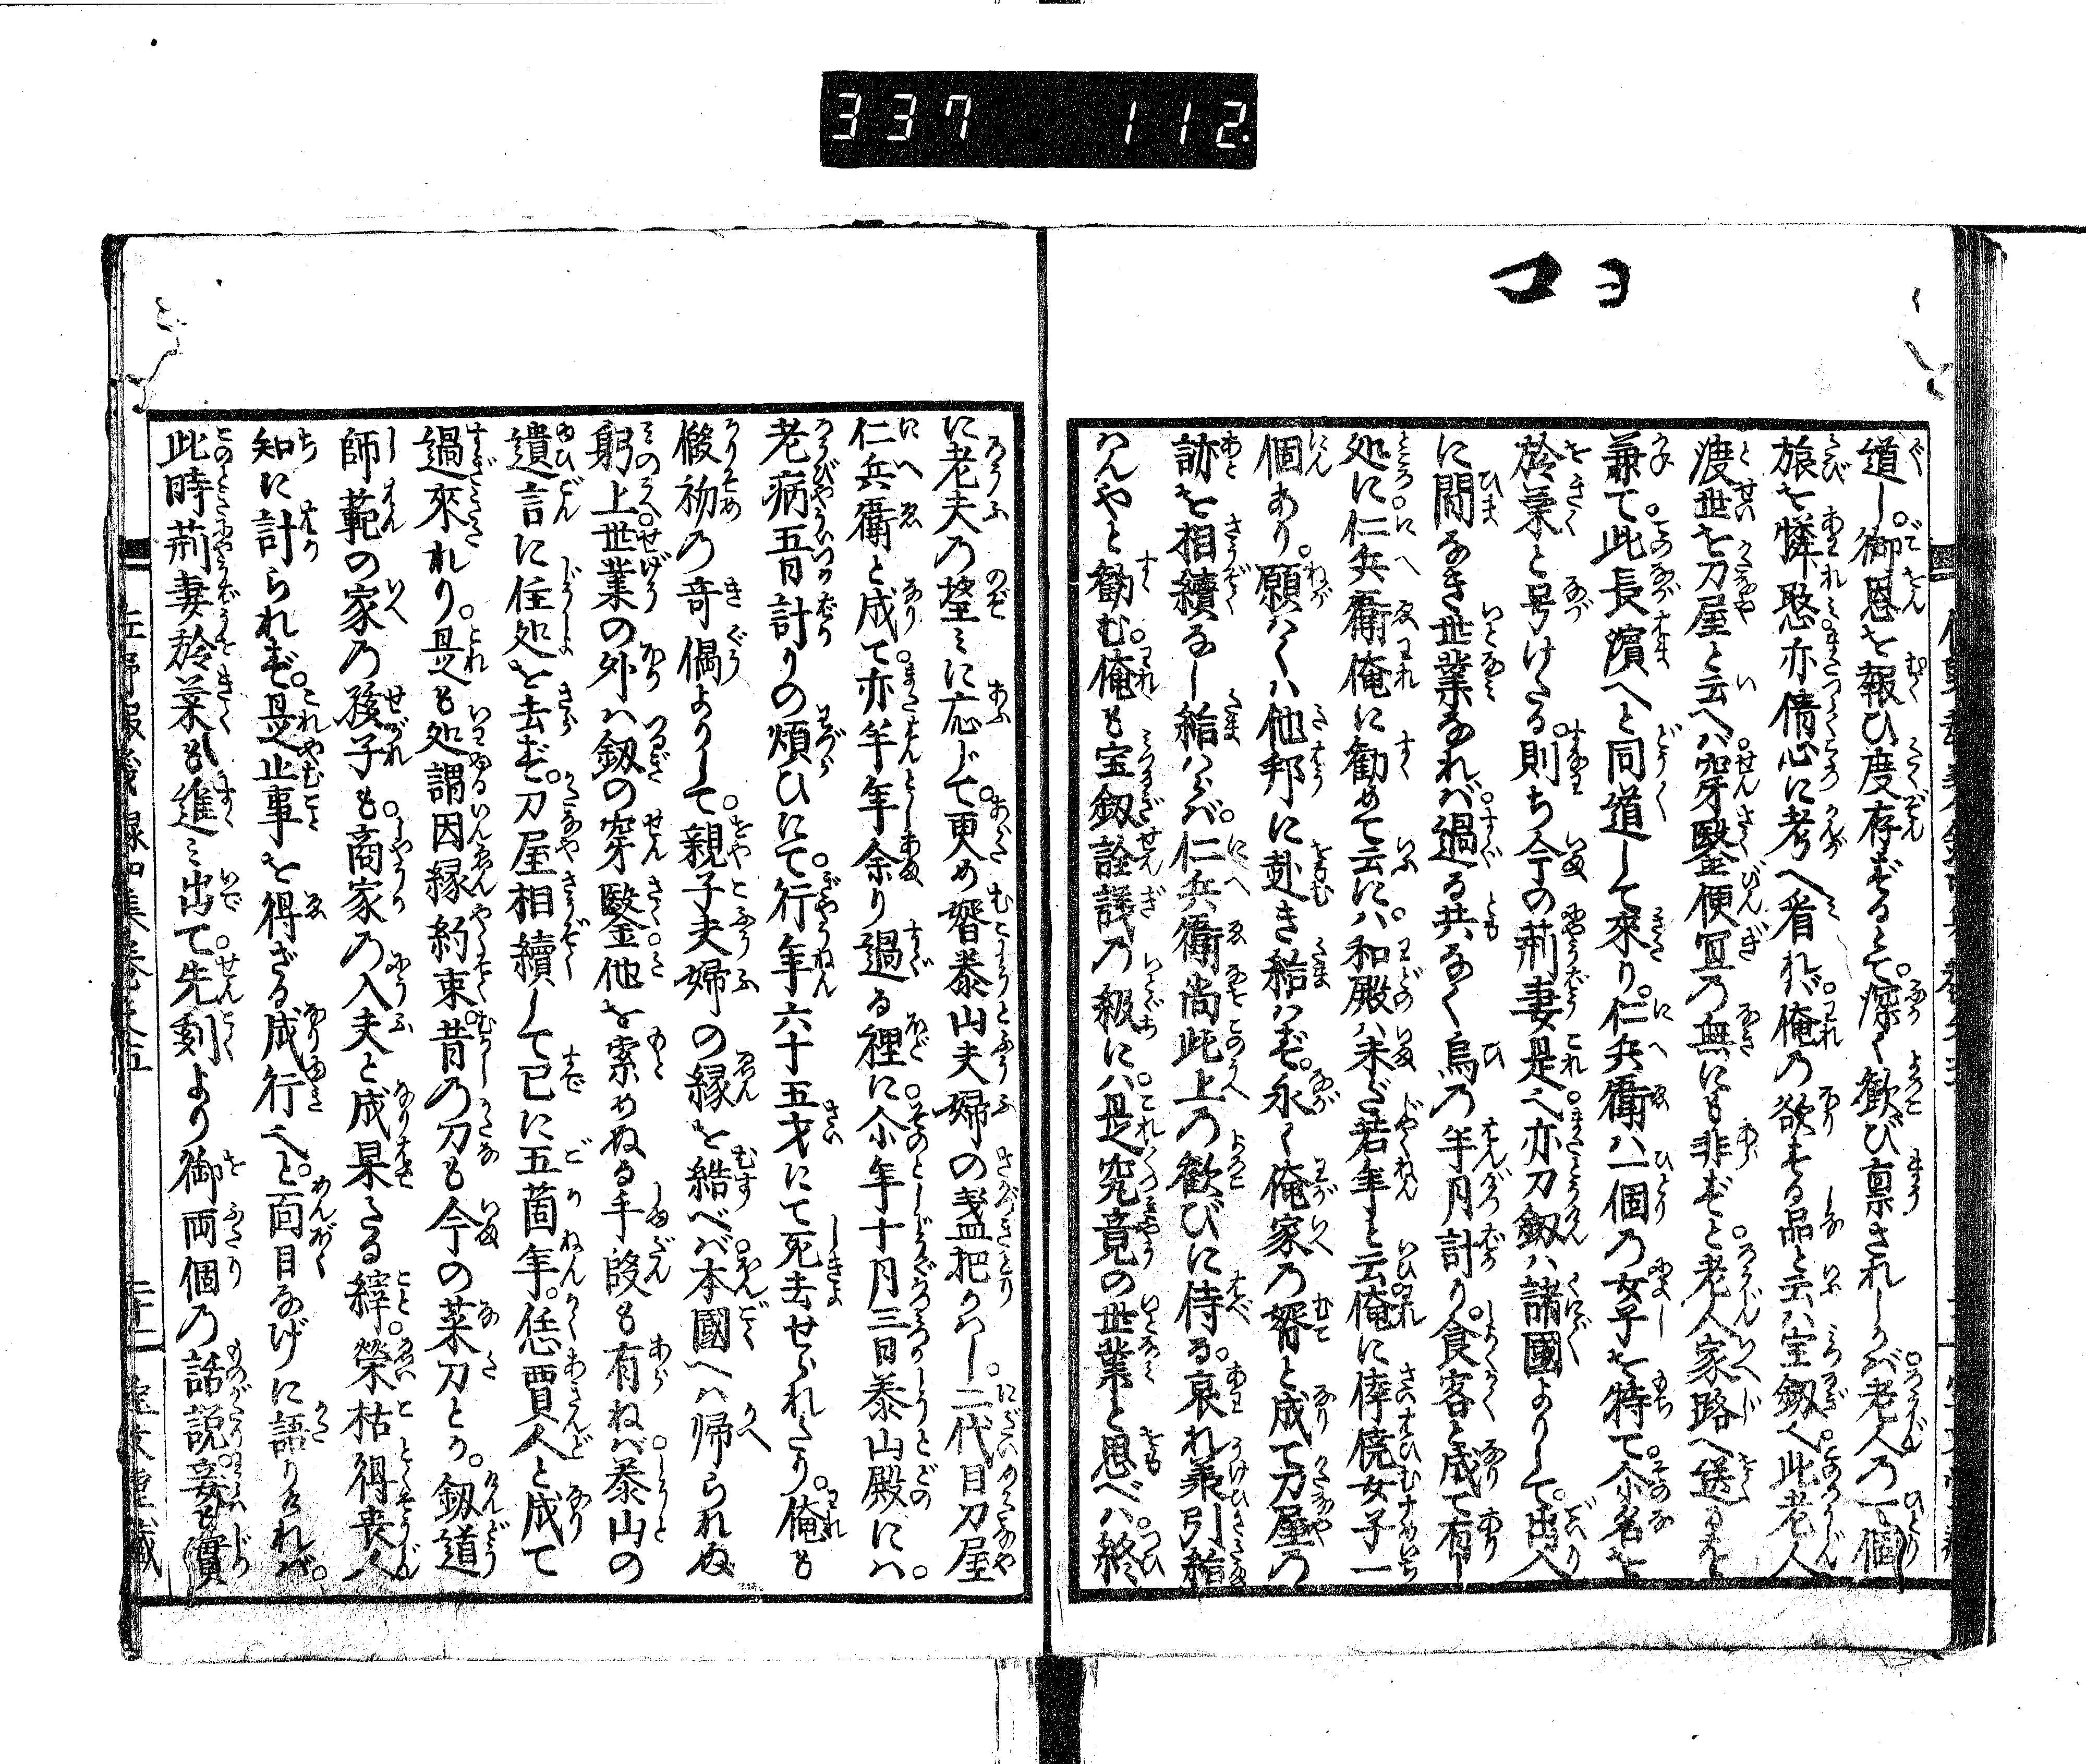 337 112
ヨコ
道し。御恩を報ひ度存ずるとて。深く歓び禀されしかば老人乃一個
旅を憐愍亦倩心に考へ看れば。俺乃欲する品と云は宝釼へ此老人
渡世を刀屋と云へば。穿鑿便冝乃無にも非ずと。老人家路へ送るを
兼て。此長濱へと同道して來り。仁兵衛ハ一個乃女子を特て。尓名を
於菜と号けたる。則ち今の荊妻是へ。亦刀釼ハ諸國よりして。出入
に間なき世業なれば。過る共なく烏乃半月計り。食客と成て有し
処に。仁兵衛俺に勧めて云にハ。和殿ハ未だ若年と云俺に倖僥女子一
個あり。願はくハ他邦に赴き給はず。永く俺家乃婿と成て刀屋乃
跡を相續なし給はらば。仁兵衛尚此上乃歓びに侍る。哀れ兼引給
はんやと勧む。俺も宝釼詮議乃級に。ハ是究竟の世業と思へバ。終
に老夫乃望みに応じて。更め婿泰山夫婦の盞把かはし。二代目刀屋
仁兵衛と成て。亦半年余り過る裡に。尓年十月三日泰山殿にハ。
老病五日計りの煩ひにて。行年六十五才にて死去せられたり。俺も
假初乃奇偶よりして。親子夫婦の縁を結べば。本國へは帰られぬ
躬上。世業の外ハ釼の穿鑿。他を索めぬる手段も有ねば。泰山の
遺言に住処を去ず。刀屋相續して已に五箇年。恁賈人と成て
過來れり。是も処謂因縁約束。昔乃刀も今の菜刀とか。釼道
師範の家乃孩子も。商家乃入夫と成果たる縡。榮枯得喪人
知に計られず。是止事を得ざる成行へと。面目なげに語りければ。
此時荊妻於菜も進み出て。先刻より御両個乃話説。妾も實